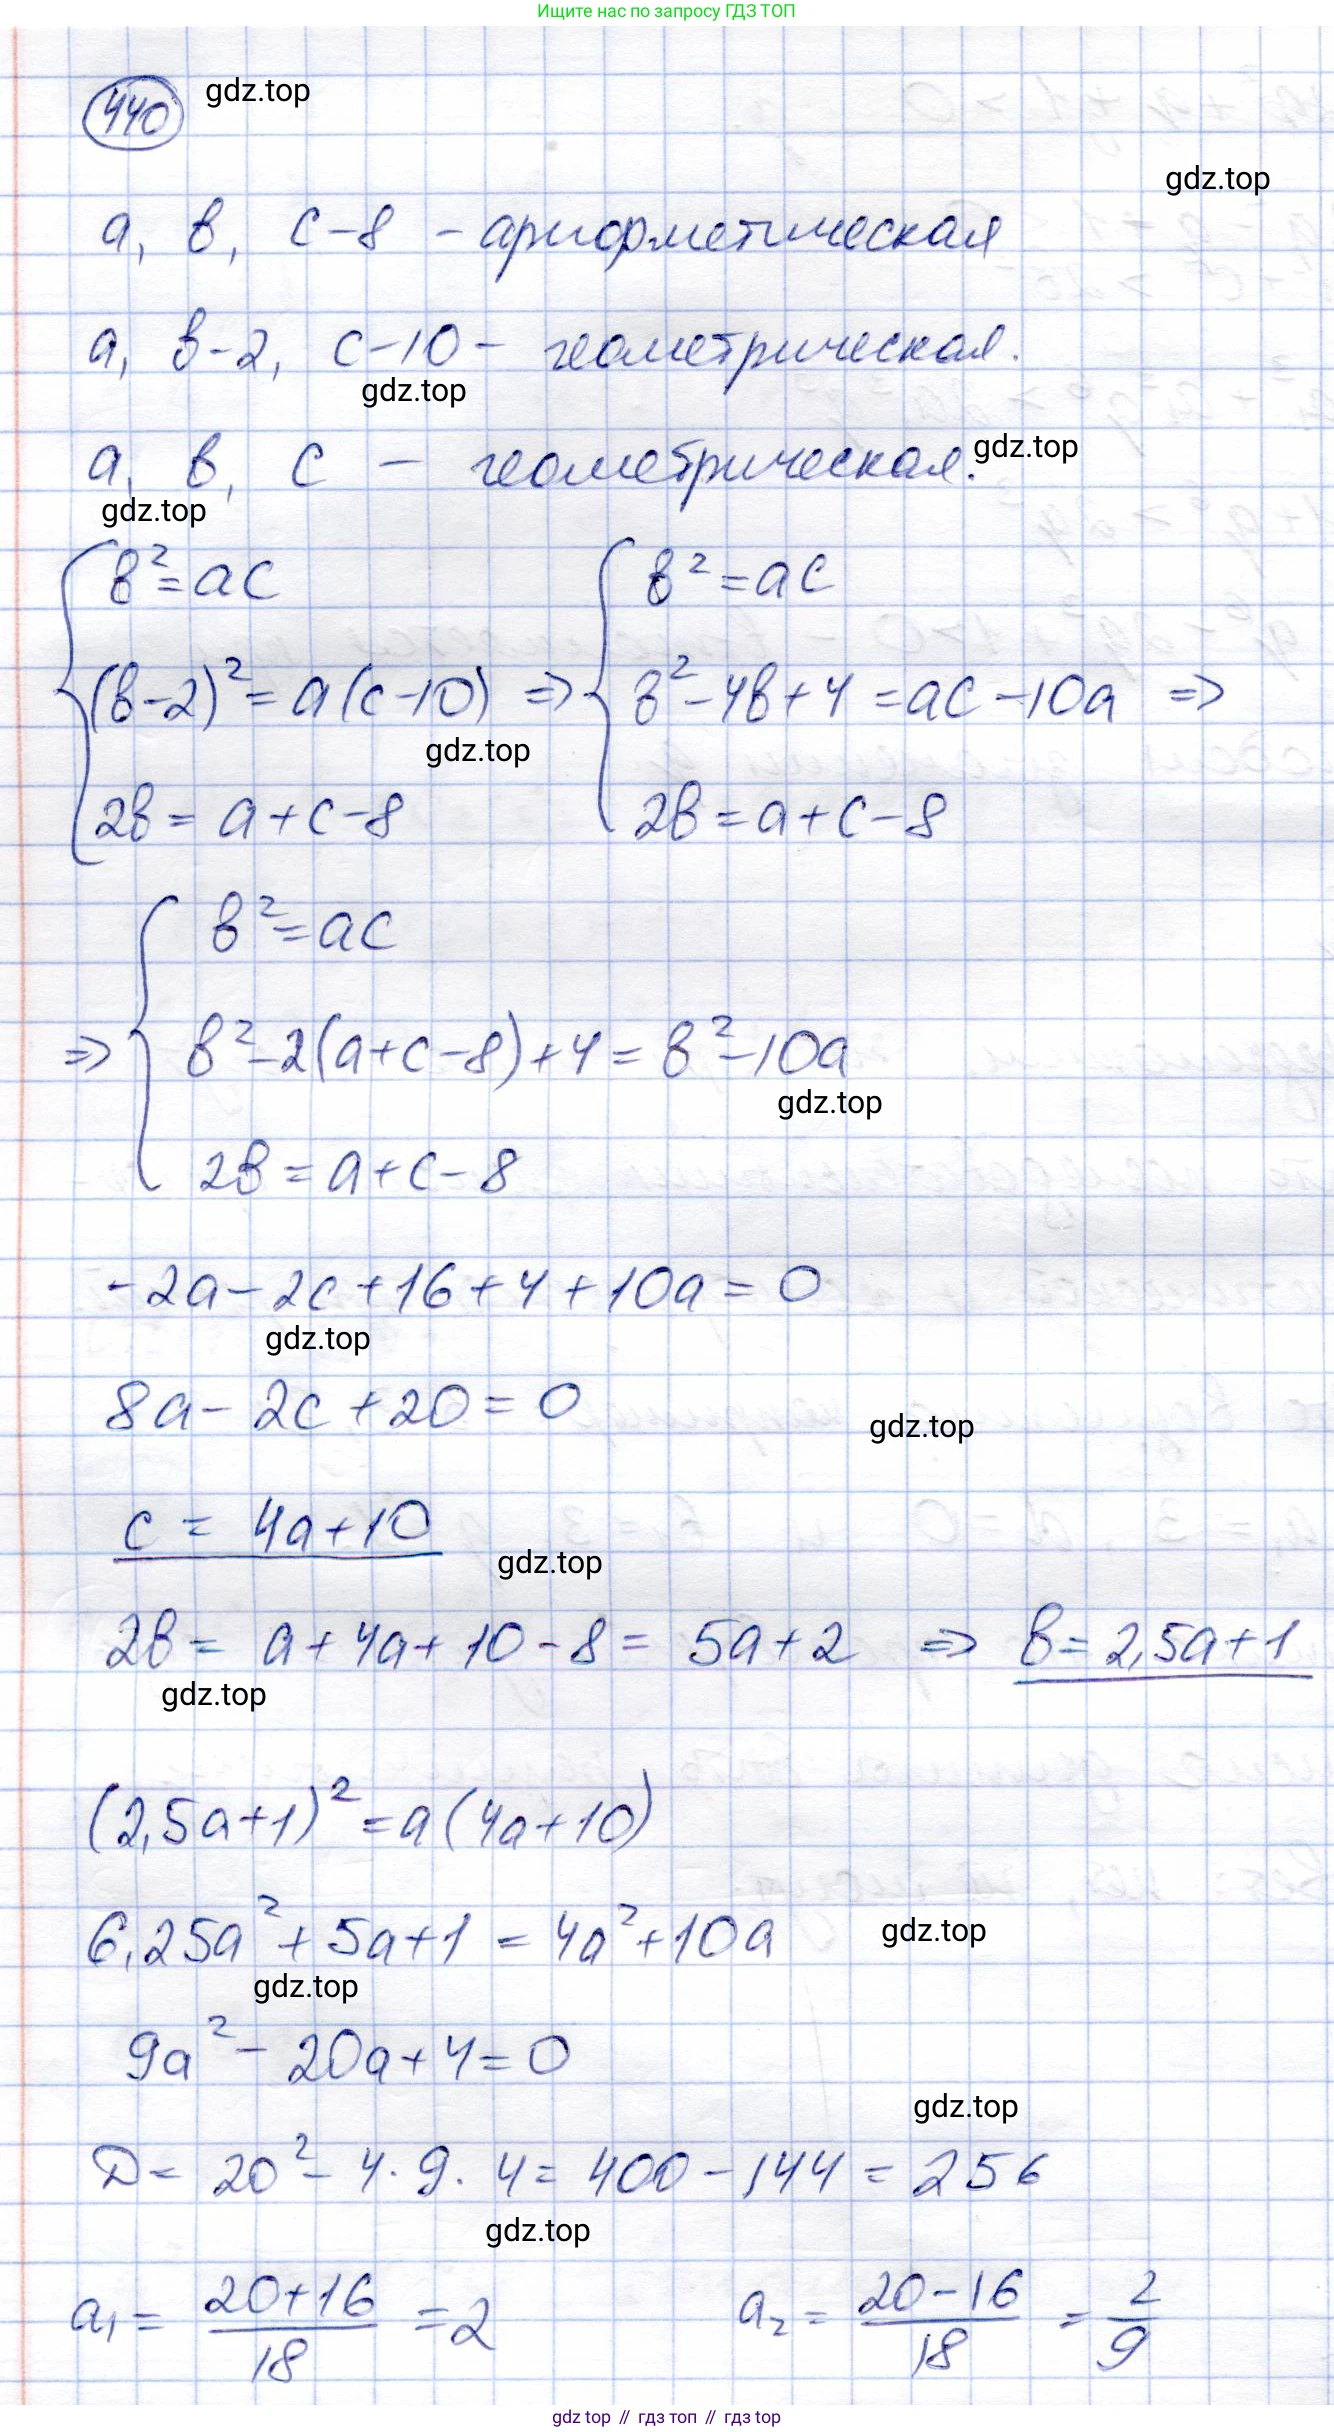 Ищите нас по запросу ГДЗ ТОП
440
gdz.top
gdz.top
a, b, c-8 - арифметическая
a, b-2, c-10 - геометрическая.
gdz.top
a, b, c - геометрическая.
gdz.top
gdz.top
b²=ac b²=ac
(b-2)²=a(c-10) ⇒ b²-4b+4=ac-10a ⇒
gdz.top
2b=a+c-8 2b=a+c-8
b²=ac
⇒ b²-2(a+c-8)+4=b²-10a
gdz.top
2b=a+c-8
-2a-2c+16+4+10a=0
gdz.top
8a-2c+20=0
gdz.top
c = 4a+10
gdz.top
2b= a+4a+10-8= 5a+2 ⇒ b=2,5a+1
gdz.top
(2,5a+1)²=a(4a+10)
6,25a²+5a+1=4a²+10a
gdz.top
gdz.top
9a²-20a+4=0
gdz.top
D= 20²-4·9·4=400-144=256
gdz.top
a₁= (20+16)/18 =2 a₂= (20-16)/18 = 2/9
gdz.top // гдз топ // гдз top